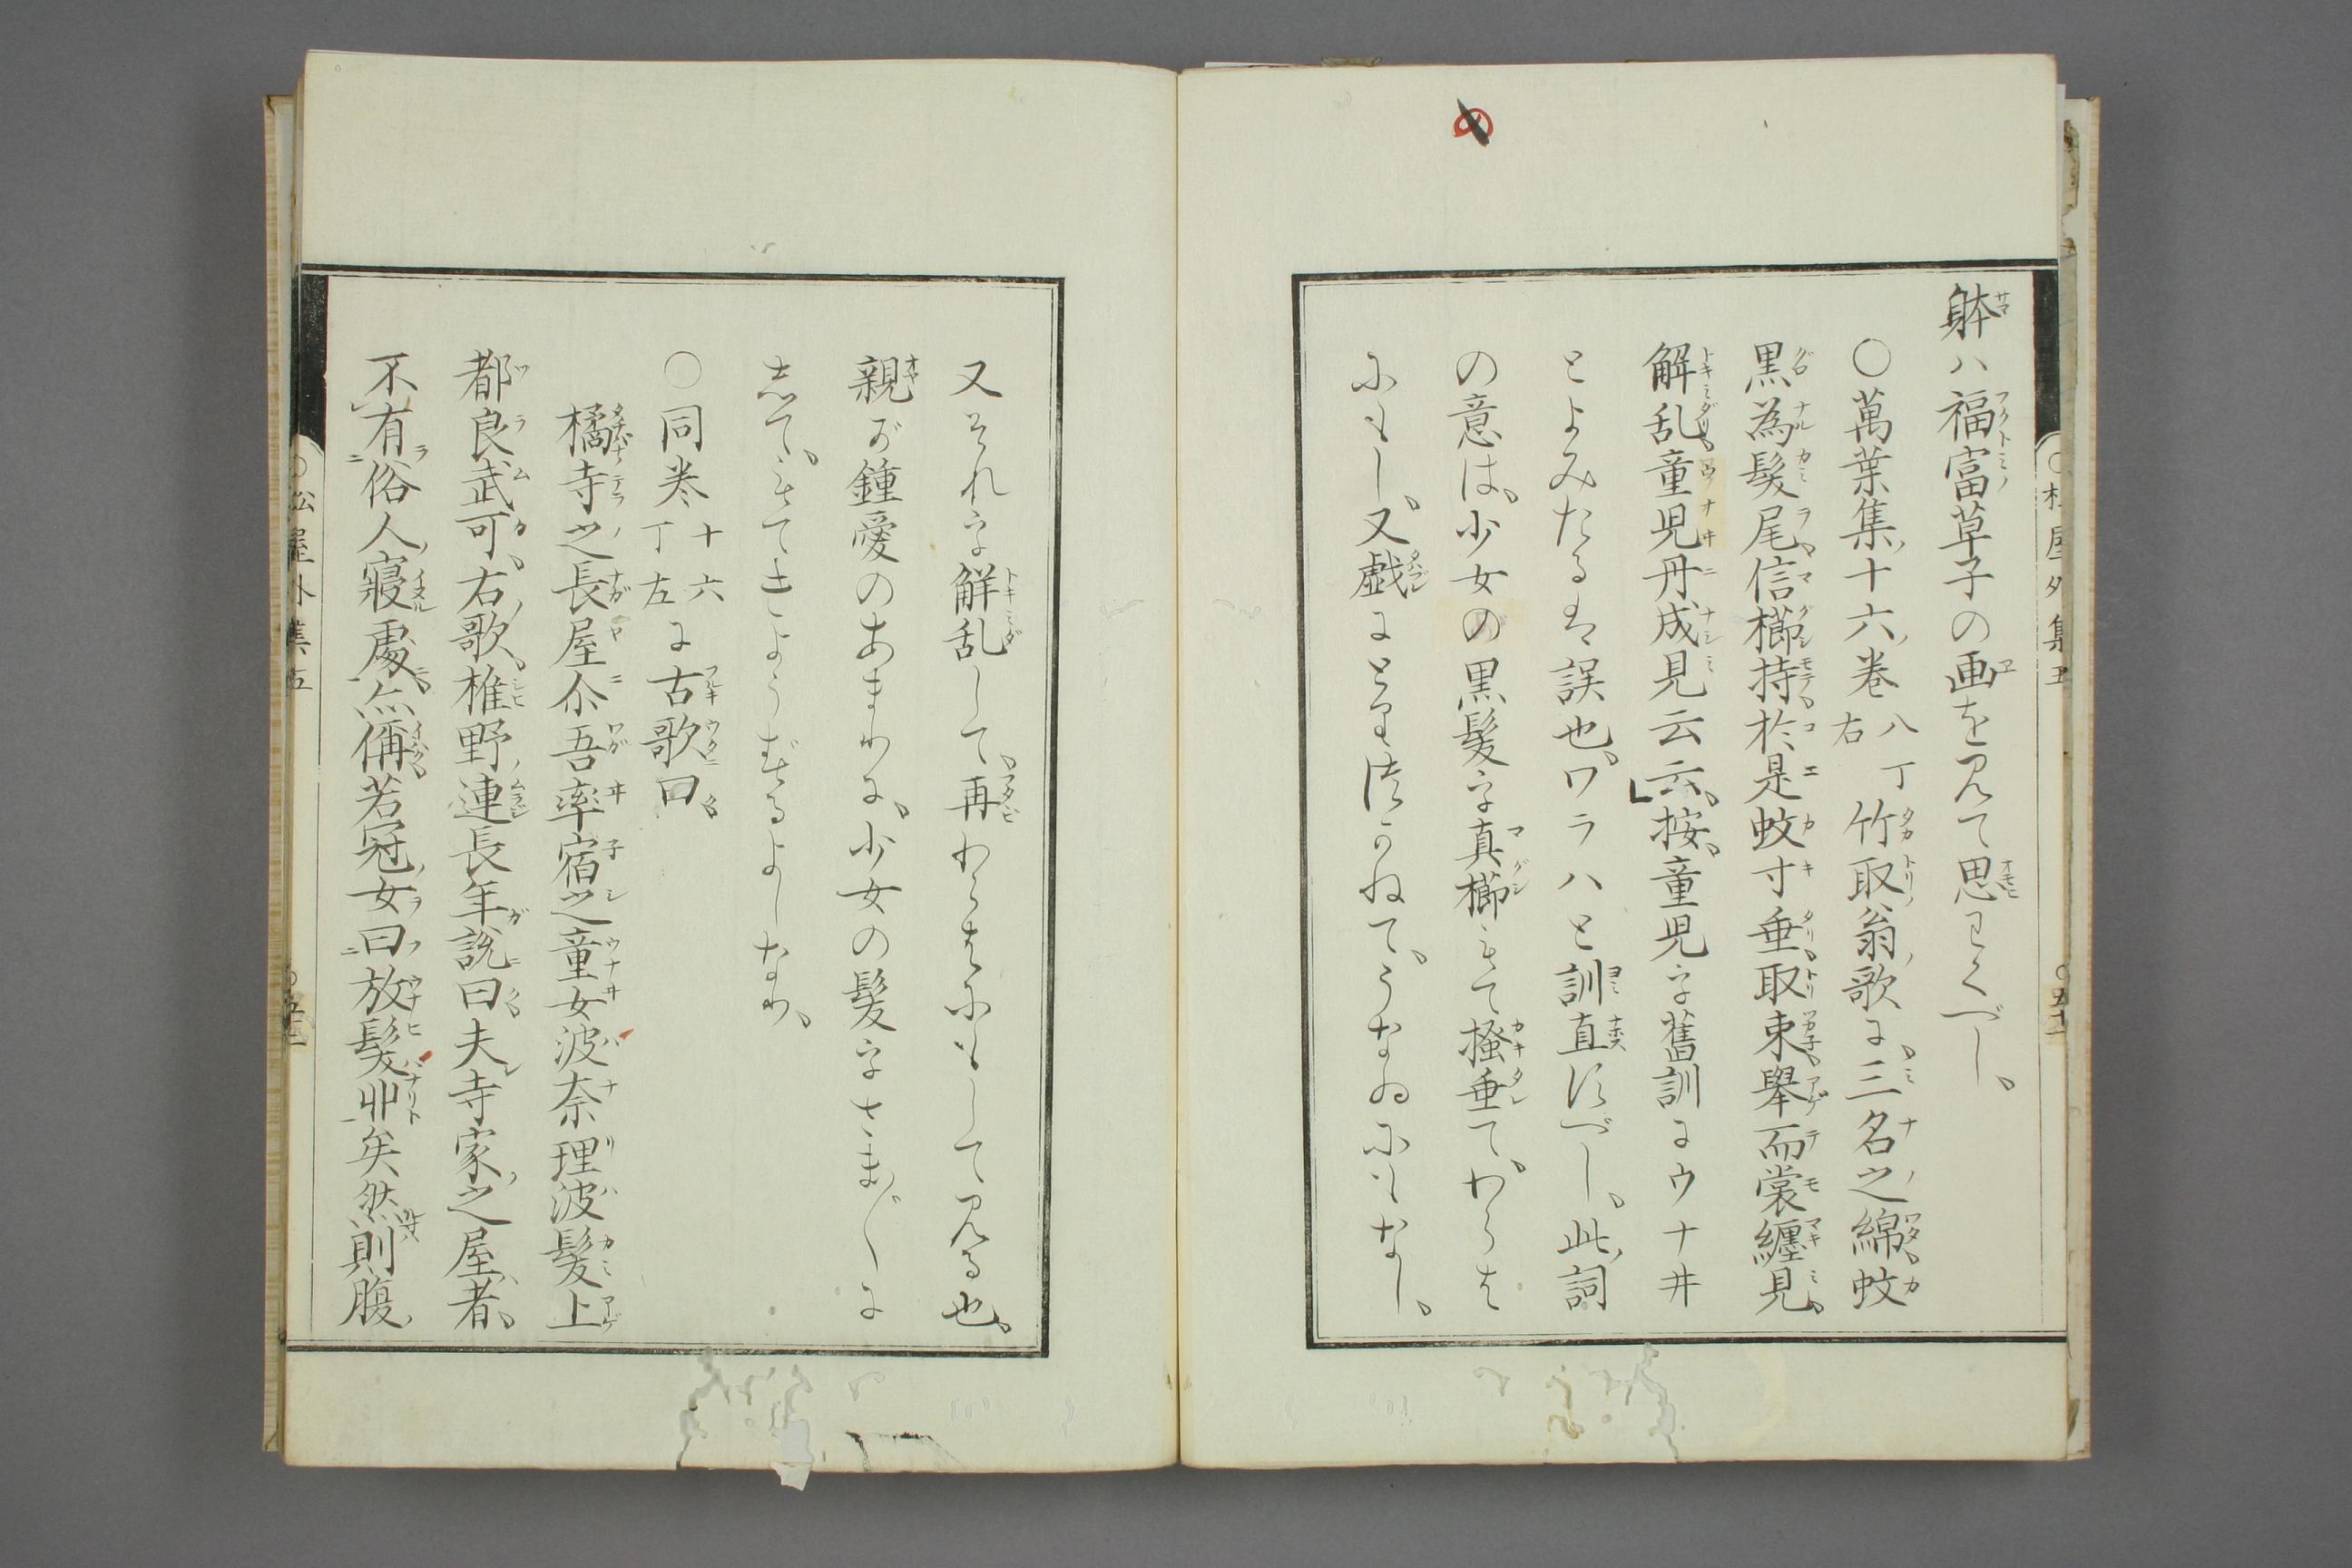 躰ハ福富草子の画を見て思わくべし、
○萬葉集十六巻八丁右竹取翁歌に三名之綿蚊
黒為髪尾信櫛持於是蚊寸垂取束擧而裳纒見
解乱童児丹成見云云、按、童児を舊訓にウナ井
とよみたるは誤也、ワラハと訓直すべし、此詞
の意は、少女の黒髪を真櫛もて掻垂て、わらは
にもし、又戯にとり束かねて、うなゐにもなし、
又それを解乱して、再わらはにもして見る也、
親が鍾愛のあまりに、少女の髪をさま〴〵に
して、もてきようずるよしなり、
○同巻十六丁左に古歌曰
橘寺之長屋尒吾率宿之童女波奈理波髪上
都良武可、右歌、椎野連長年説曰夫寺家之屋者、
不有俗人寝處、亦偁若冠女曰放髪丱矣然則腹
○松屋外集五
○五十一